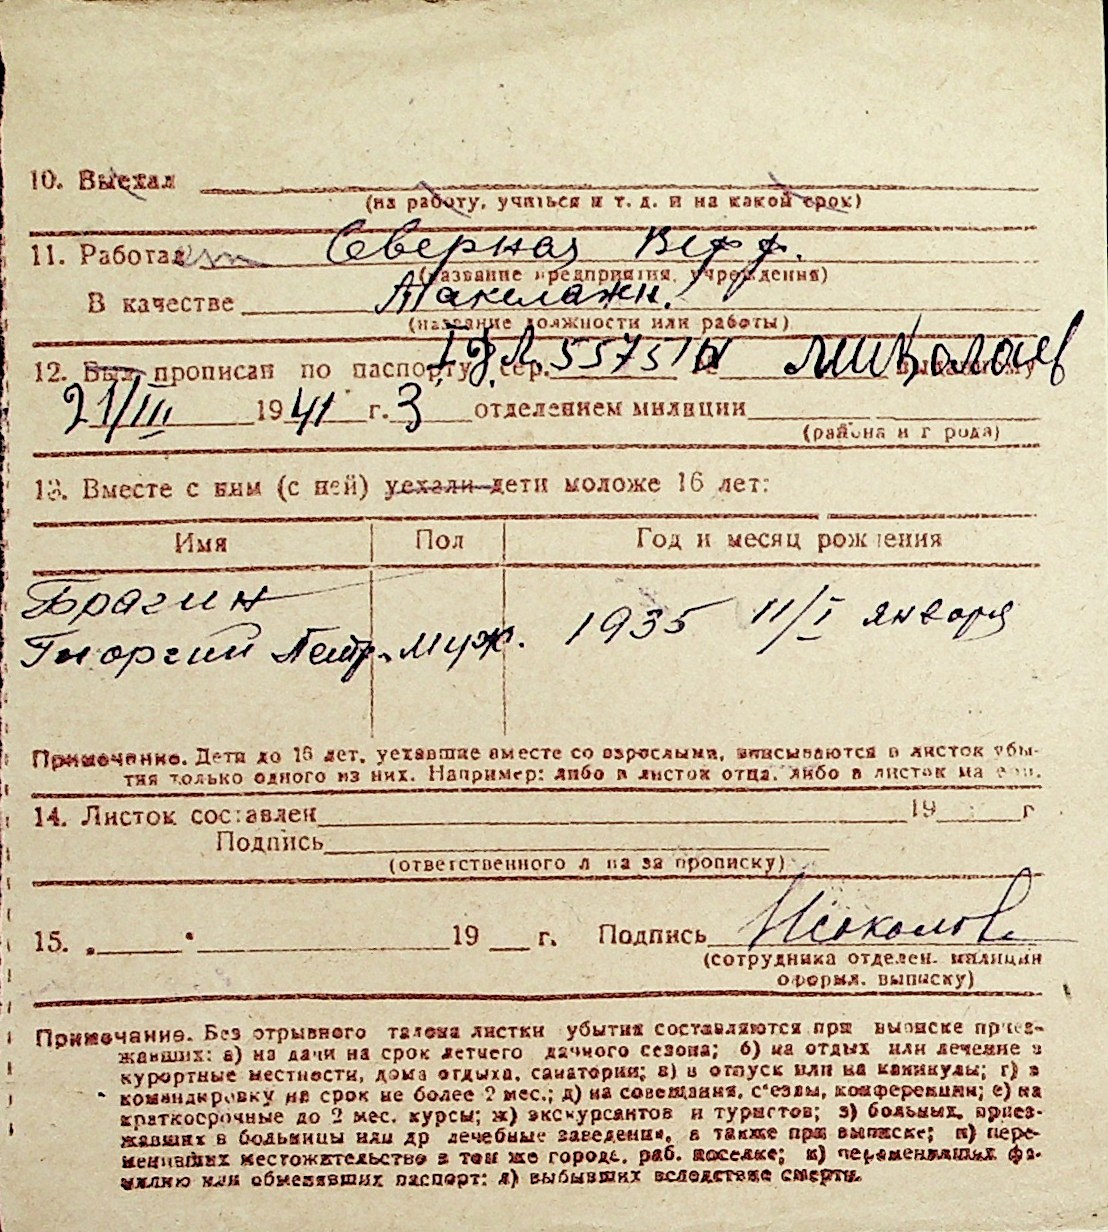 10. Выехал
(на работу, учиться и т. д. и на какой срок)
11. Работал Северная Верф.
(название предприятия, учреждения)
В качестве Такелажн.
(название должности или работы)
12. Был прописан по паспорту сер. 557511 Николаев
21/III 1941 г. 3 отделением милиции
(района и города)
13. Вместе с ним (с ней) уехали дети моложе 16 лет:
Имя Пол Год и месяц рождения
Брагин
Георгий Петр. муж. 1935 11/I января
Примечание. Дети до 16 лет, уехавшие вместе со взрослыми, вписываются в листок убы-
тия только одного из них. Например: либо в листок отца, либо в листок матери.
14. Листок составлен 19 г
Подпись
(ответственного лица за прописку)
15. „ “ 19 г. Подпись Исоколов
(сотрудника отделен. милиции
оформл. выписку)
Примечание. Без отрывного талона листки убытия составляются при выписке приез-
жавших: а) на дачи на срок летнего дачного сезона; б) на отдых или лечение в
курортные местности, дома отдыха, санатории; в) в отпуск или на каникулы; г) в
командировку на срок не более 2 мес.; д) на совещания, с'езды, конференции; е) на
краткосрочные до 2 мес. курсы; ж) экскурсантов и туристов; з) больных, приез-
жавших в больницы или др лечебные заведения, а также при выписке; и) пере-
менивших местожительство в том же городе, раб. поселке; к) переменивших фа-
милию или обменявших паспорт; л) выбывших вследствие смерти.